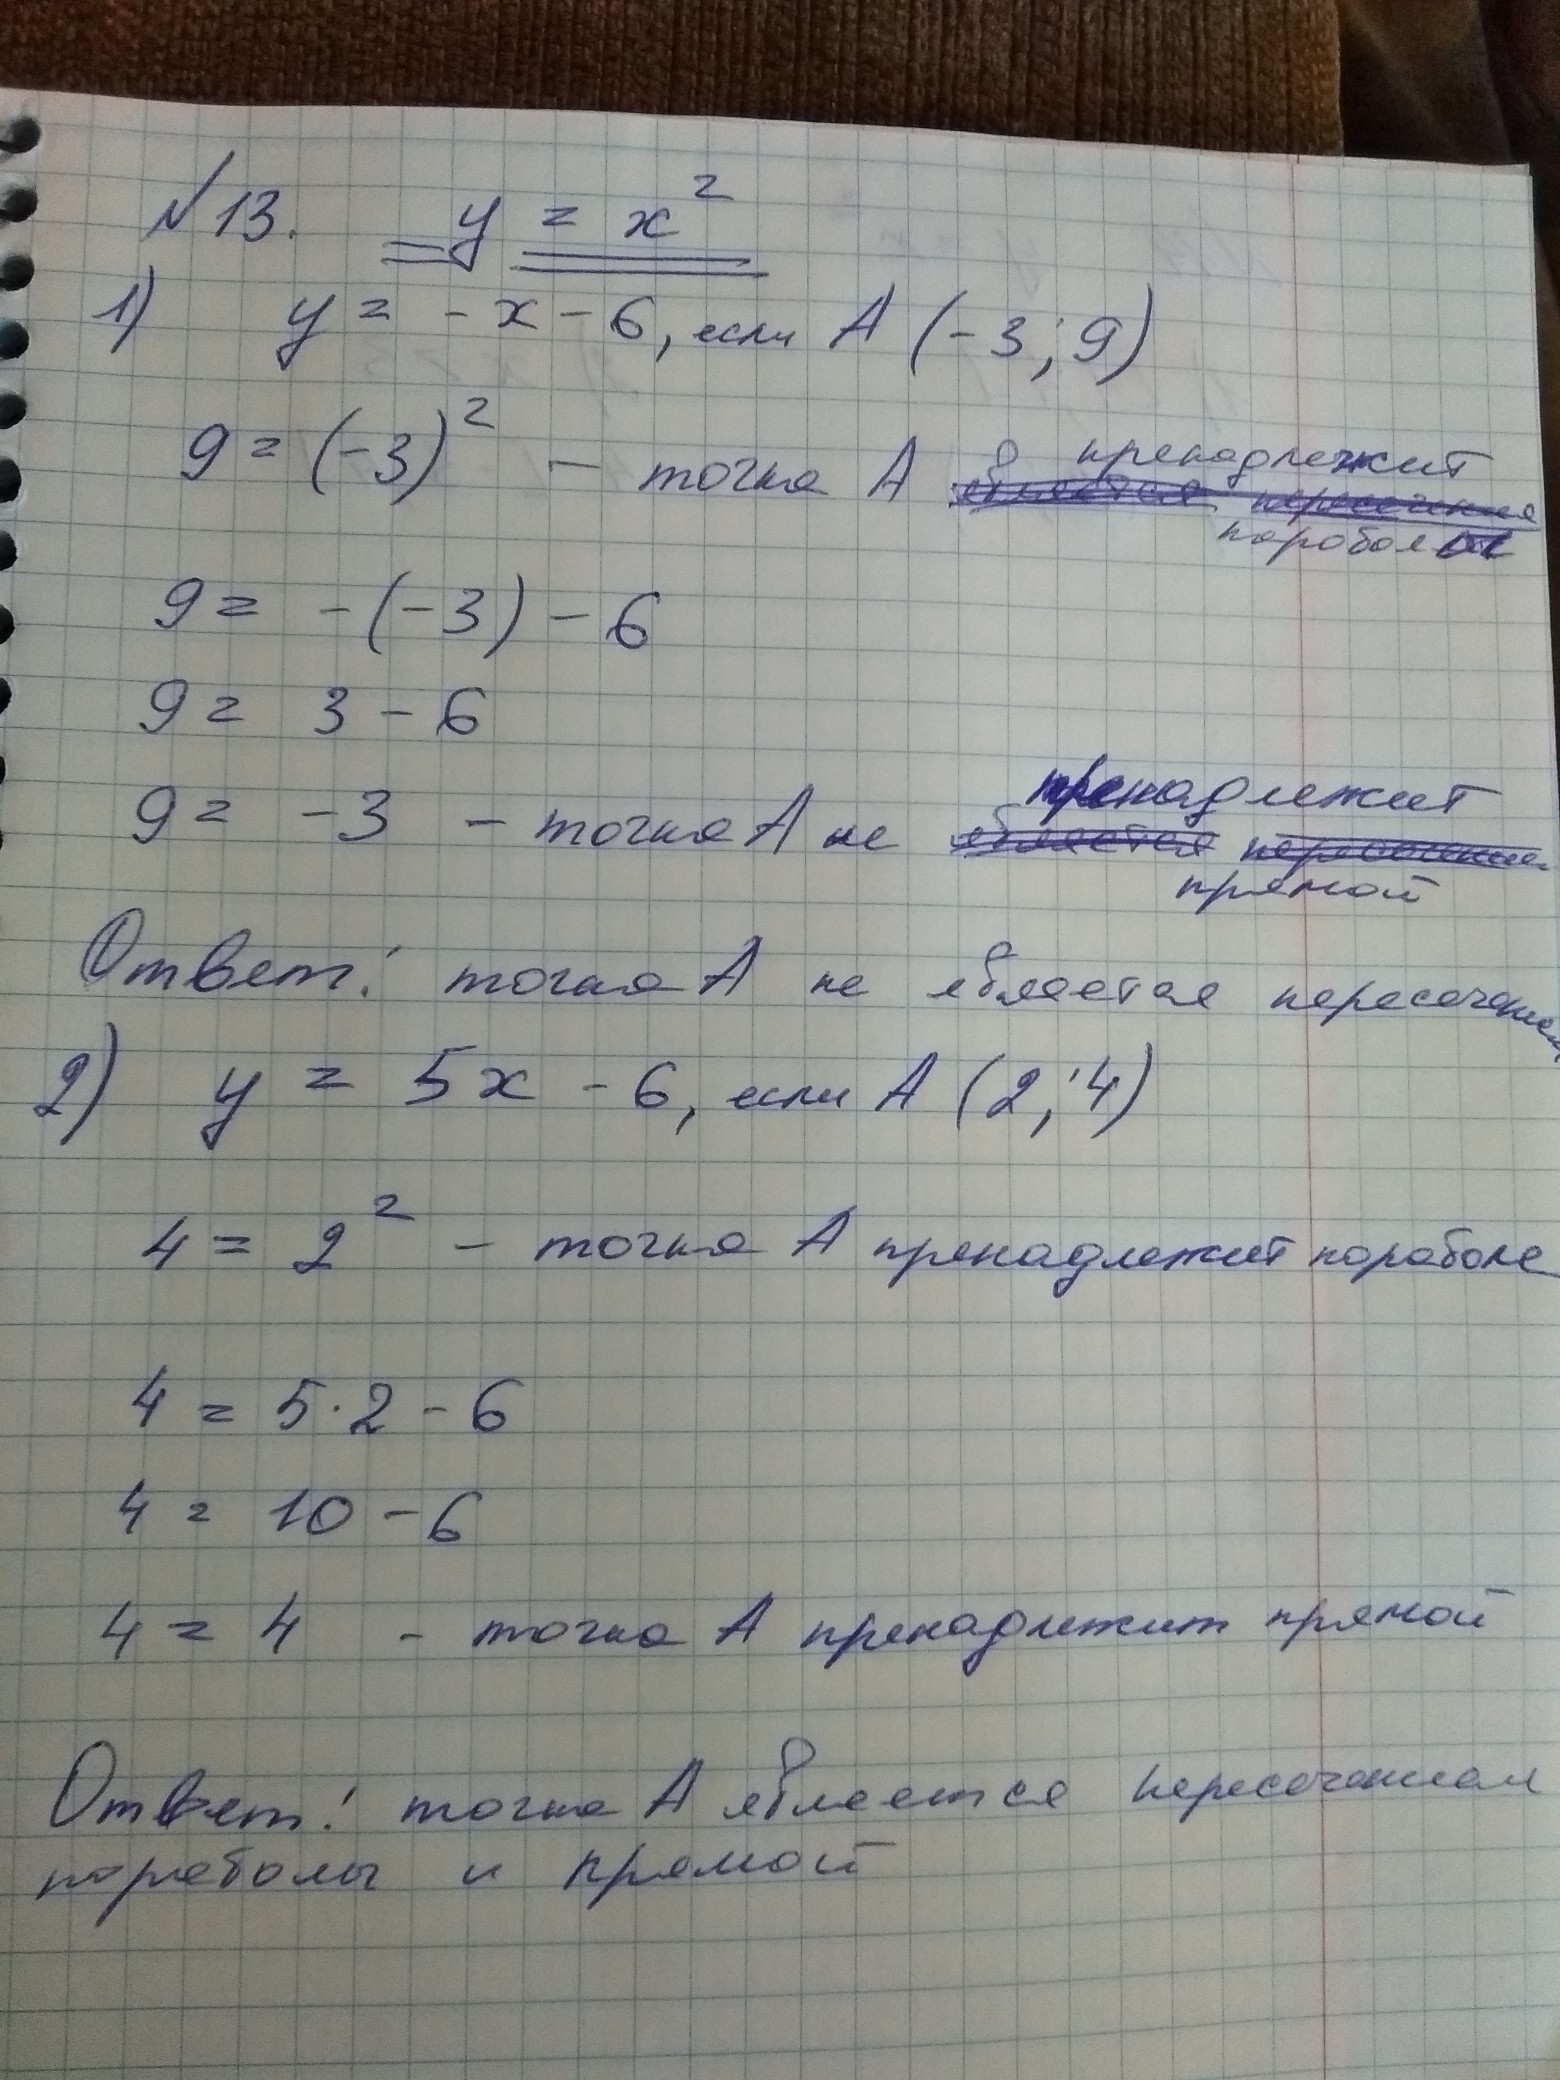 №13. y = x²
1) y = -x - 6, если A (-3; 9)
9 = (-3)² - точка A пренадлежит
параболе
9 = -(-3) - 6
9 = 3 - 6
9 = -3 - точка A не пренадлежит
прямой
Ответ: точка A не является пересечением
2) y = 5x - 6, если A (2; 4)
4 = 2² - точка A пренадлежит порабole
4 = 5·2 - 6
4 = 10 - 6
4 = 4 - точка A пренадлежит прямой
Ответ: точка A является пересечением
пораболы и прямой